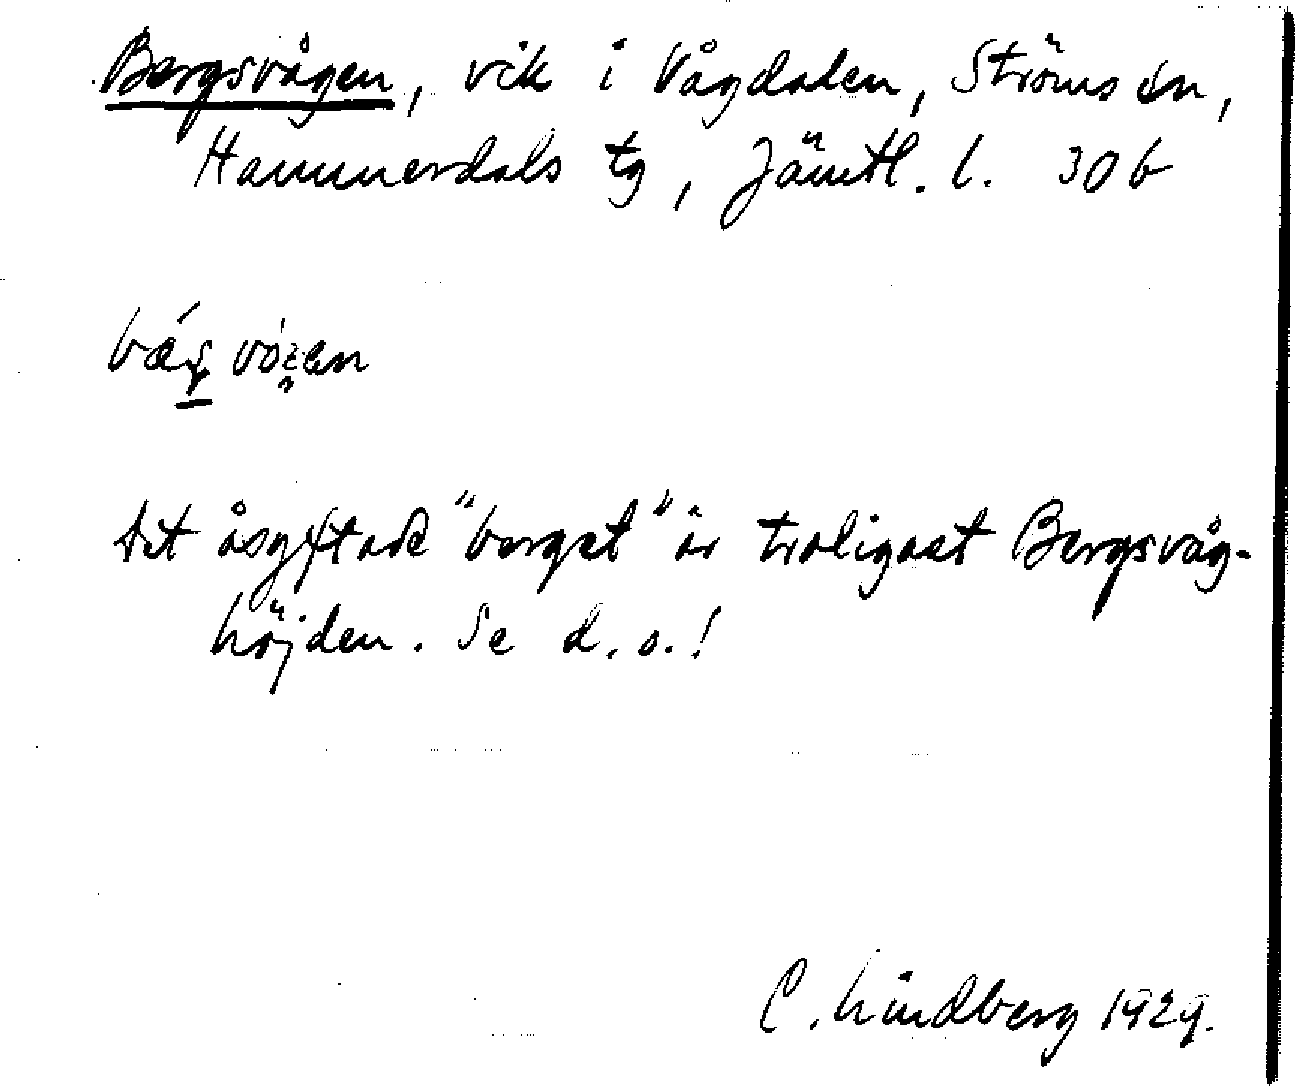 Bergsvågen, vik i Vågdalen, Ströms sn,
Hammerdals tg, Jämtl. l. 30 b
Det åsyftade "berget" är troligast Bergsvåg-
höjden. Se d. o.!
C. Lindberg 1929.